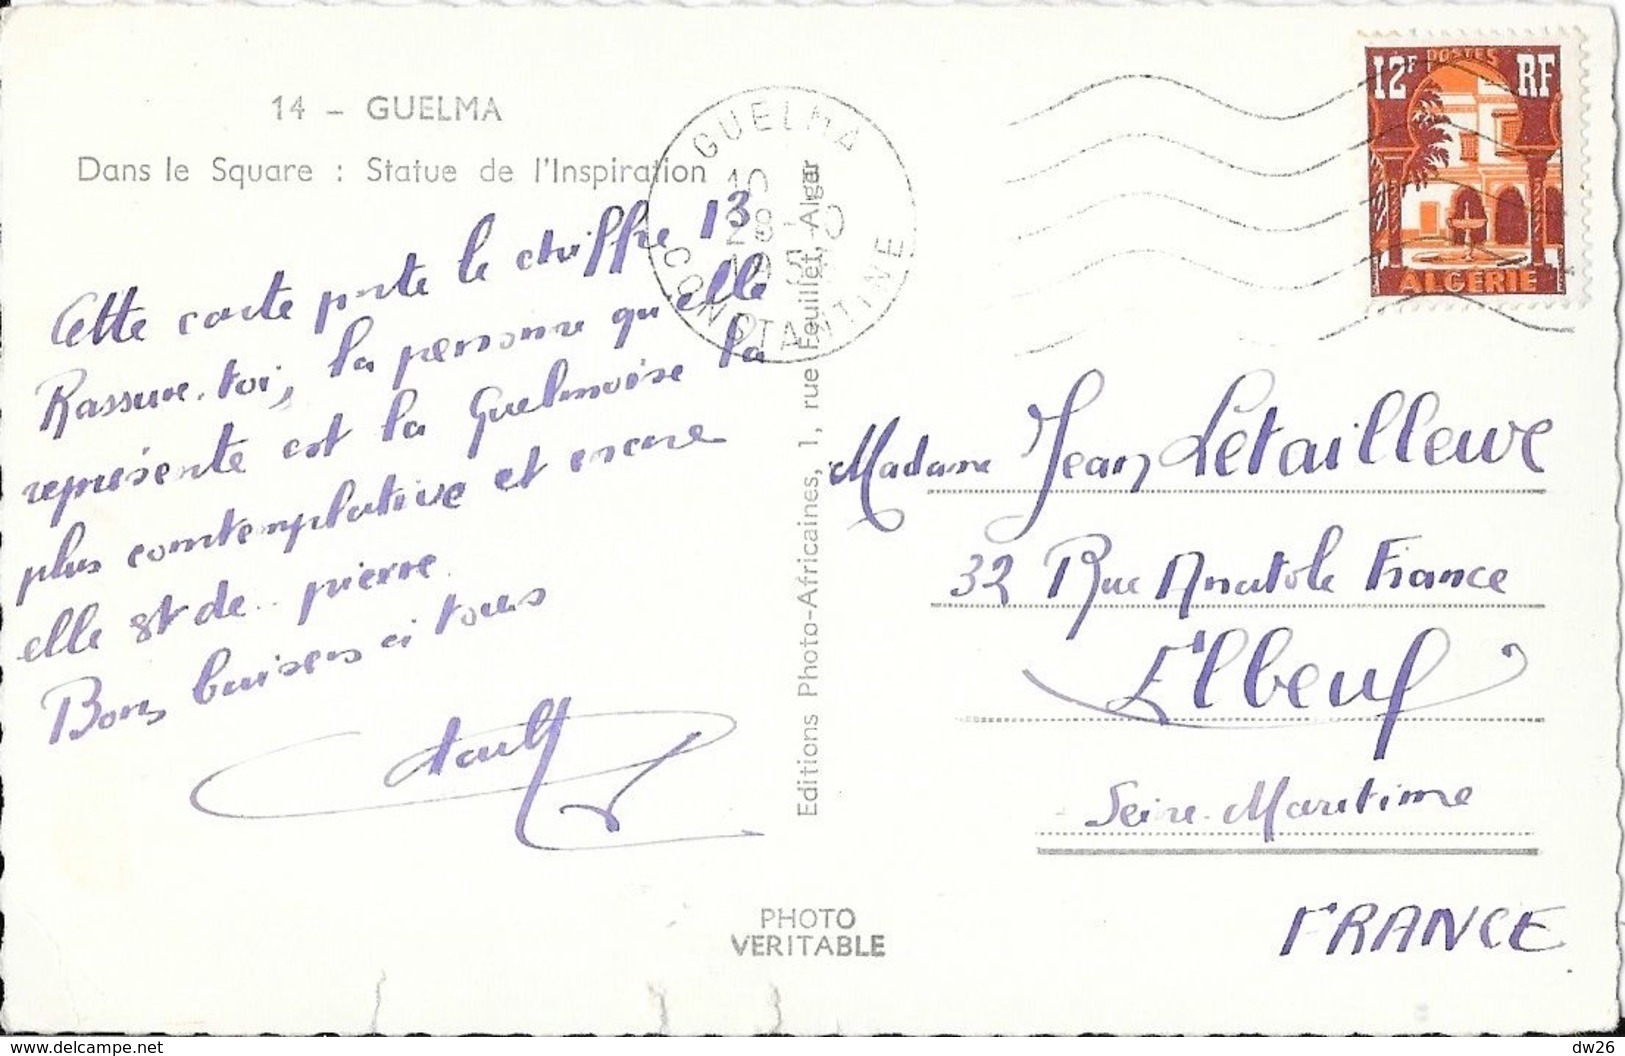 14 - GUELMA
Dans le Square : Statue de l'Inspiration
Cette carte porte le chiffre 13
Rassure-toi, la personne qu'elle
représente est la Guelmoise la
plus contemplative et encore
elle est de.. pierre.
Bons baisers à tous
GUELMA
10
28
CONSTANTINE
Editions Photo-Africaines, 1, rue Feuillet, Alger
PHOTO
VERITABLE
POSTES
12F RF
ALGERIE
Madame Jean Letailleur
32 Rue Anatole France
Elbeuf
Seine-Maritime
FRANCE
dw26